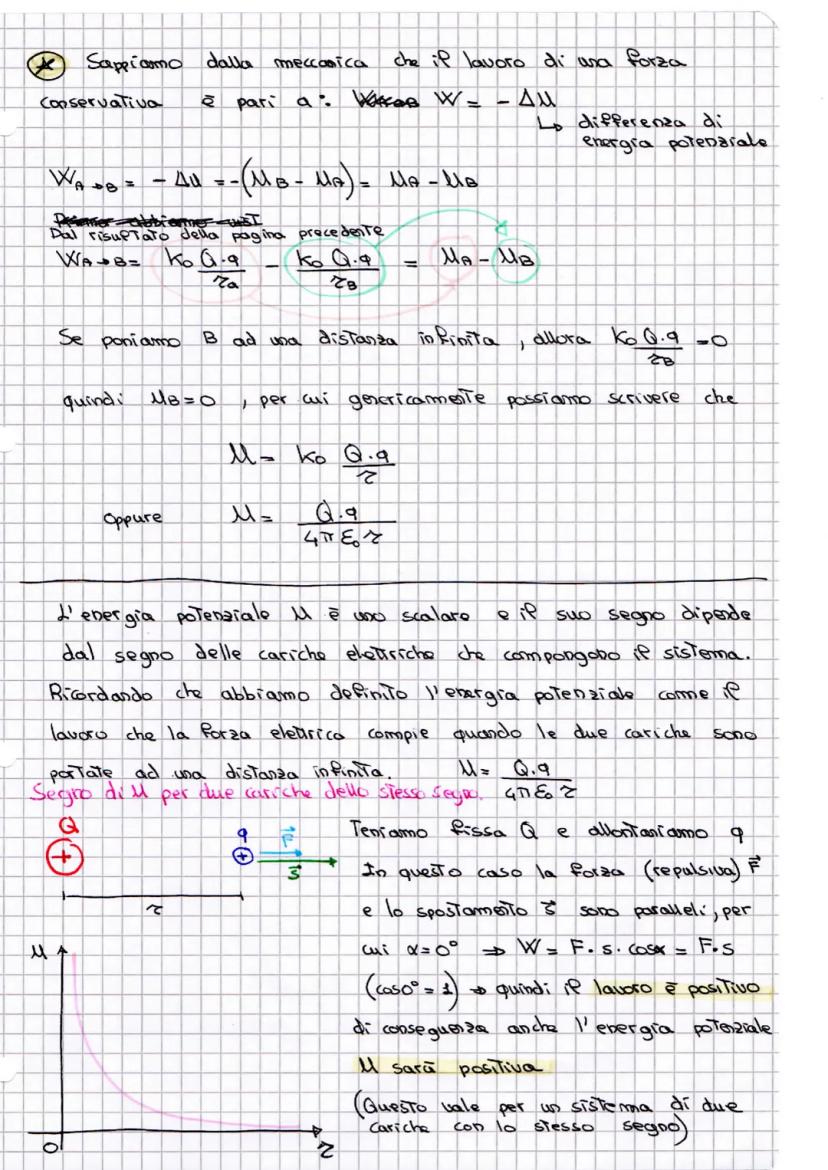 * Sappiamo dalla meccanica che il lavoro di una forza
conservativa è pari a: W = - ΔU
↳ differenza di
energia potenziale
W_A→B = - ΔU = -(U_B - U_A) = U_A - U_B
Dal risultato della pagina precedente
W_A→B = k₀ Q·q / r_a - k₀ Q·q / r_B = U_A - U_B
Se poniamo B ad una distanza infinita, allora k₀ Q·q / r_B = 0
quindi U_B = 0, per cui genericamente possiamo scrivere che
U = k₀ Q·q / r
oppure U = Q·q / 4π ε₀ r
L'energia potenziale U è uno scalare e il suo segno dipende
dal segno delle cariche elettriche che compongono il sistema.
Ricordando che abbiamo definito l'energia potenziale come il
lavoro che la forza elettrica compie quando le due cariche sono
portate ad una distanza infinita. U = Q·q / 4π ε₀ r
Segno di U per due cariche dello stesso segno.
Q
+
q
+
F⃗
s⃗
r
Teniamo fissa Q e allontaniamo q
In questo caso la forza (repulsiva) F⃗
e lo spostamento s⃗ sono paralleli, per
cui α = 0° ⇒ W = F · s · cosα = F · s
(cos0° = 1) → quindi il lavoro è positivo
di conseguenza anche l'energia potenziale
U sarà positiva
(Questo vale per un sistema di due
cariche con lo stesso segno)
U
O
r